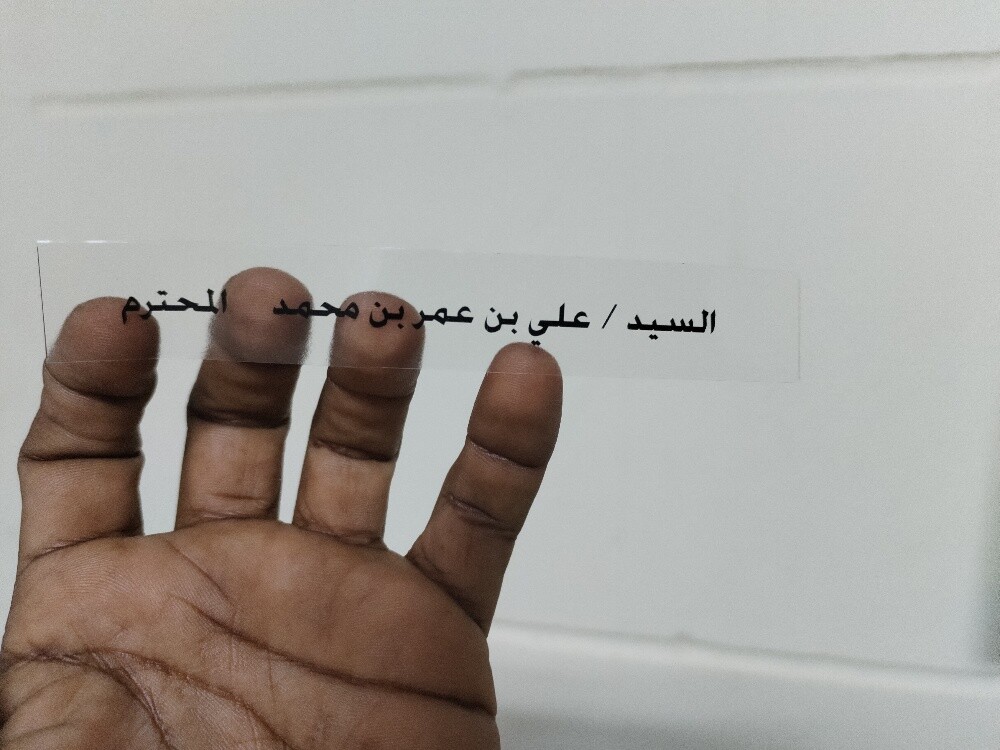 السيد / علي بن عمر بن محمد المحترم